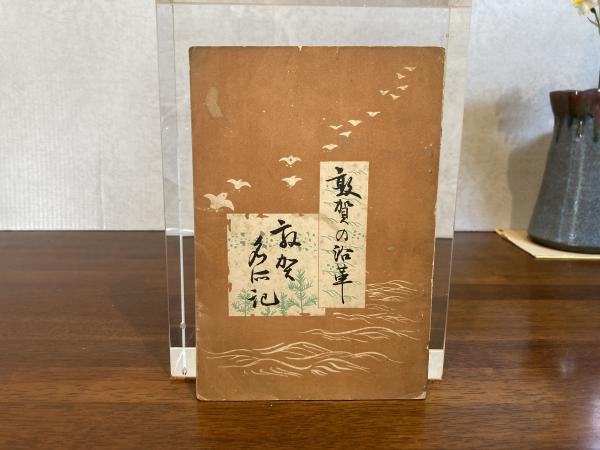 敦賀の沿革
敦賀
名所記